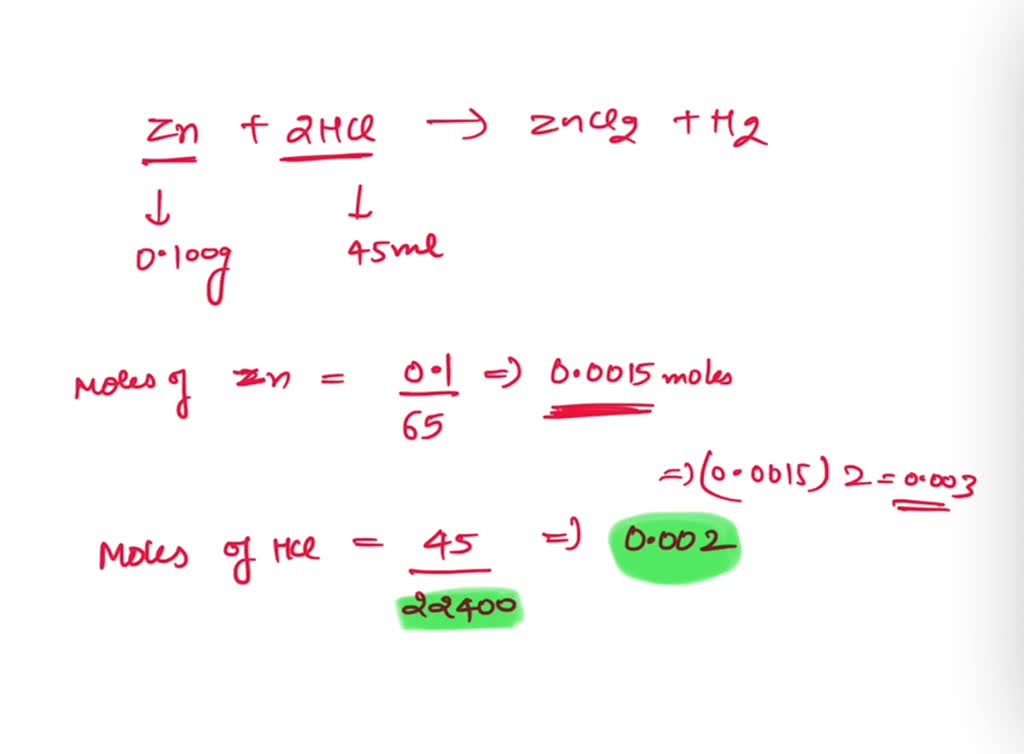 Zn + 2HCl → ZnCl2 + H2
↓ ↓
0.100g 45ml
Moles of Zn = 0.1/65 => 0.0015 moles
=> (0.0015) 2 = 0.003
Moles of HCl = 45/22400 => 0.002